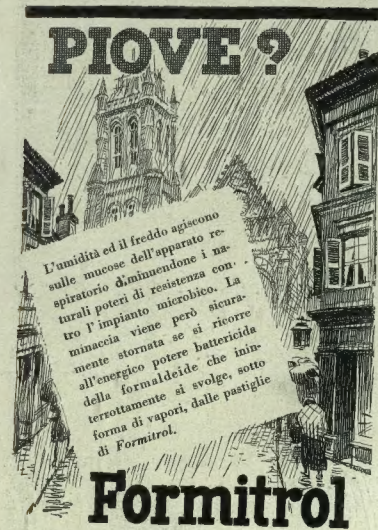 PIOVE ?
L'umidità ed il freddo agiscono
sulle mucose dell'apparato re-
spiratorio diminuendone i na-
turali poteri di resistenza con-
tro l'impianto microbico. La
minaccia viene però sicura-
mente stornata se si ricorre
all'energico potere battericida
della formaldeide che inin-
terrottamente si svolge, sotto
forma di vapori, dalle pastiglie
di Formitrol.
Formitrol